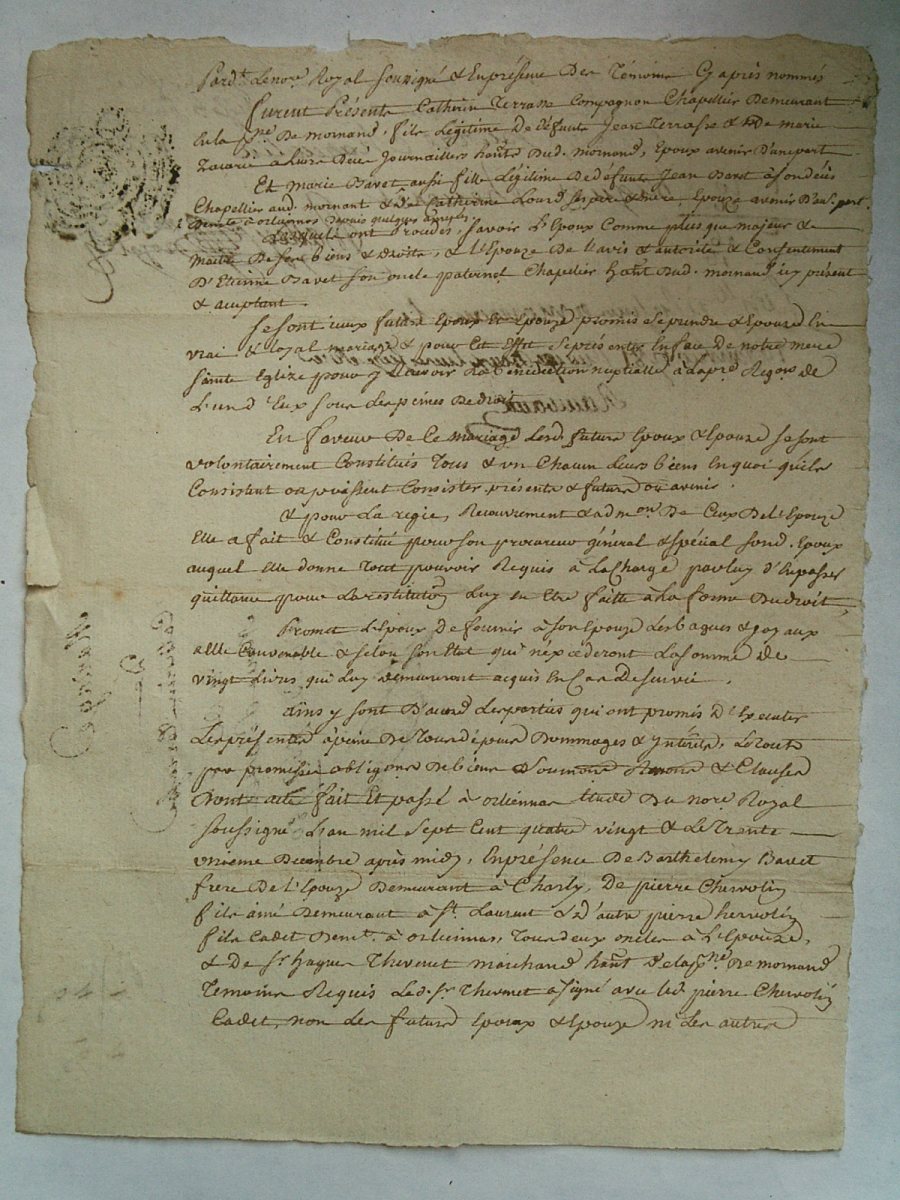 Pard.t Lenore Royal soussigné & En présence Des Témoins Cy après nommés
furent Présents Catherin Terrasse Compagnon Chapellier Demeurant
en la p.sse De mornand, fils Légitime De déffunts Jean Terrasse & De marie
à Journaillers hants Dud. mornand, Epoux avenir D'une part
Et Marie Bavet aussi fille Légitime De défunts Jean Bavet
Chapellier aud. mornant & de Catherine ses père & mère, Epouze avenir D'au. part
Demte à orliennas Depuis quelques
Lesquels ont procédés, savoir L'Epoux Comme plus que majeur &
maitre De ses biens & droits, & L'Epouze De L'avis & autorité & Consentement
D'Etienne Bavet son oncle paternel Chapelier hant Dud. mornand icy présent
& acceptant
Se sont iceux futurs Epoux Et Epouze promis se prendre & Epouzer En
vrai & Loyal mariage & pour Cet Effet se présenter En face de notre mere
sainte Eglize pour y Recevoir La bénédiction nuptialle à La pre Reqon de
L'un d'Eux sous Les peines De droit
En faveur De Ce mariage Lesd. futurs Epoux & Epouze se sont
volontairement Constitués Tous & un Chacun Leurs biens En quoi qu'ils
Consistent ou puissent Consister, présents & futurs ou avenir.
& pour La regie, Recouvrement & admon De Ceux De L'Epouze
Elle a fait & Constitué pour son procureur général & spécial sond. Epoux
auquel Elle donne Tout pouvoir Requis à La Charge par Luy d'En passer
quittance pour La restitution Luy en Etre faitte à La forme Du droit,
Promet L'Epoux De fournir à son Epouze Les bagues & joyaux
à Elle Convenable & selon son Etat qui n'excéderont La somme De
vingt Livres qui Luy demeureront acquis En Cas De survie.
ains y sont D'accord Les parties qui ont promis D'Executer
Les présentes à peine De Tous dépens Dommages & Intérêts, Le Tout
par promisses obligons De biens & Clauses
Dont acte fait Et passé à orliennas Etude Du nore Royal
soussigné L'an mil sept Cent quatre vingt & Le Trente
unieme Decembre après midy, En présence De Barthelemy Bavet
frere De L'Epouze Demeurant à Charly, De pierre Chervolin
fils ainé Demeurant à St. Laurent & d'autre pierre
fils Cadet Demt. à orliennas, Tous deux oncles à L'Epouze,
& De Sr. Thevenet marchand hant De La p.sse De mornand
Temoins Requis Led. Sr Thevenet a signé avec Led. pierre Chervolin
Cadet, non Les futurs Epoux & Epouze ni Les autres